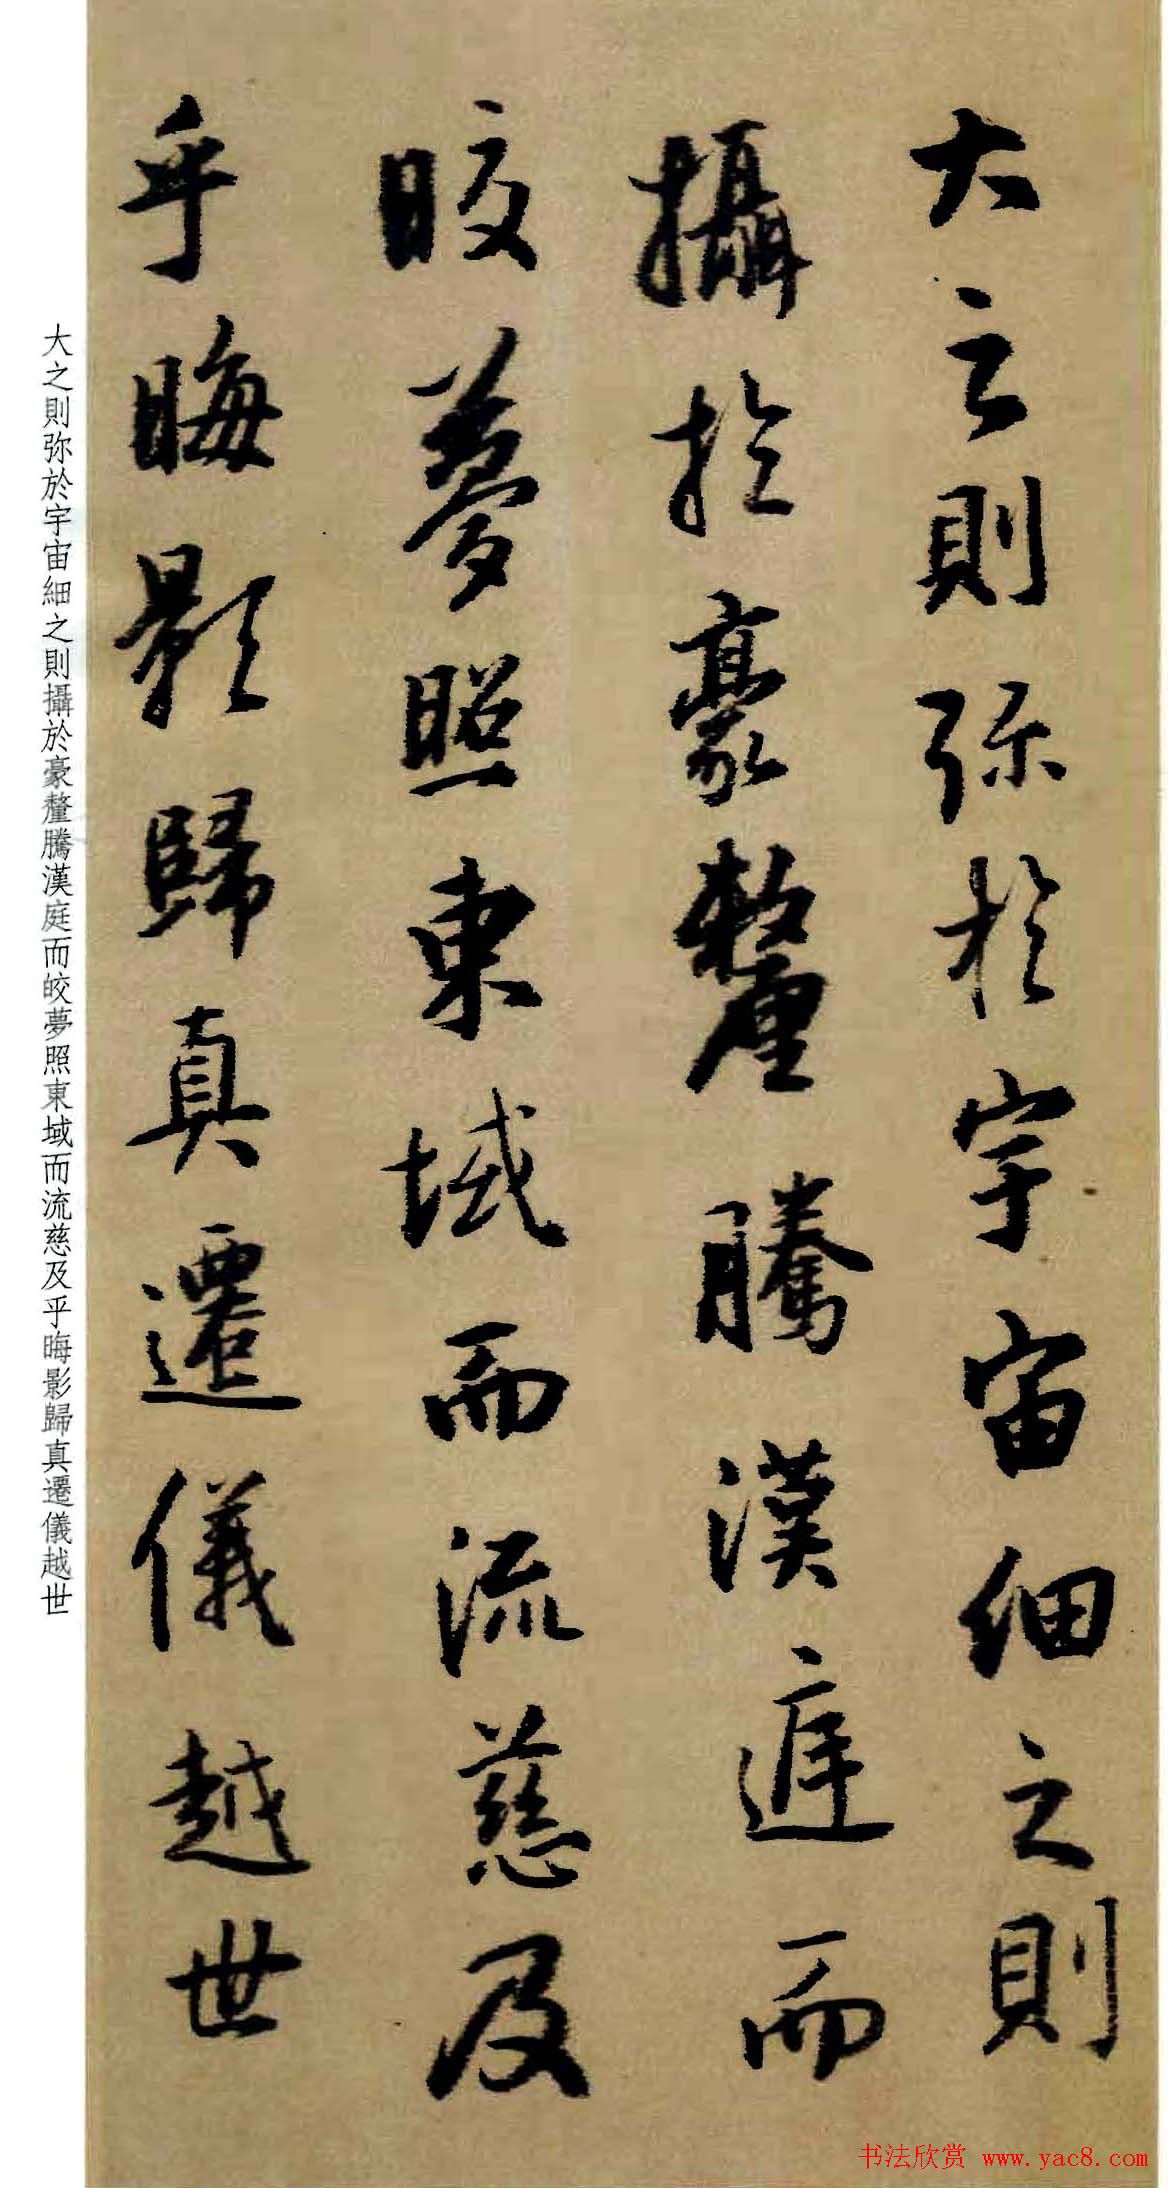 大之則弥於宇宙細之則
攝於豪釐騰漢庭而
皎夢照東域而流慈及
乎晦影歸真遷儀越世
大之則弥於宇宙細之則攝於豪釐騰漢庭而皎夢照東域而流慈及乎晦影歸真遷儀越世
书法欣赏 www.yac8.com